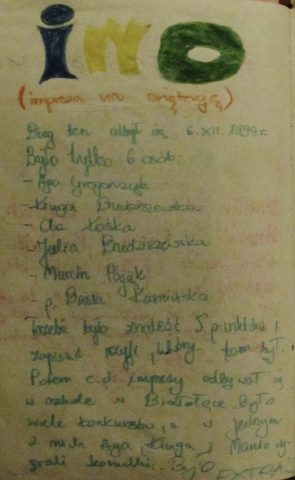 ino
(impreza na orientację)
Bieg ten odbył się 6.XII.1998r.
Było tylko 6 osób:
- Aga Gregorczyk
- Kinga Brudziszewska
- Ola Łaska
- Julia Brudziszewska
- Marcin Pająk
- p. Basia Kamińska
Trzeba było znaleść 5 punktów i
zapisać szyfr, który tam był.
Potem c.d. imprezy odbywał się
w szkole w Białołęce. Było
wiele konkursów, a w jednym
z nich Aga, Kinga i Marcin wy-
grali . Było EXTRA